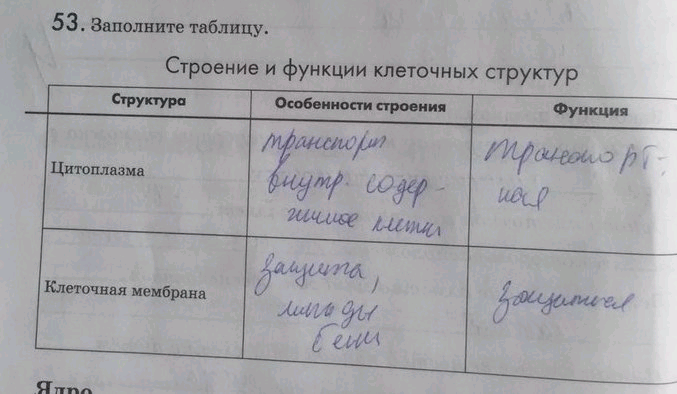 53. Заполните таблицу.
Строение и функции клеточных структур
Структура
Особенности строения
Функция
Цитоплазма
транспорт
внутр. содер-
жимое клетки
транспорт-
ная
Клеточная мембрана
защита,
белки
защитная
Ядро